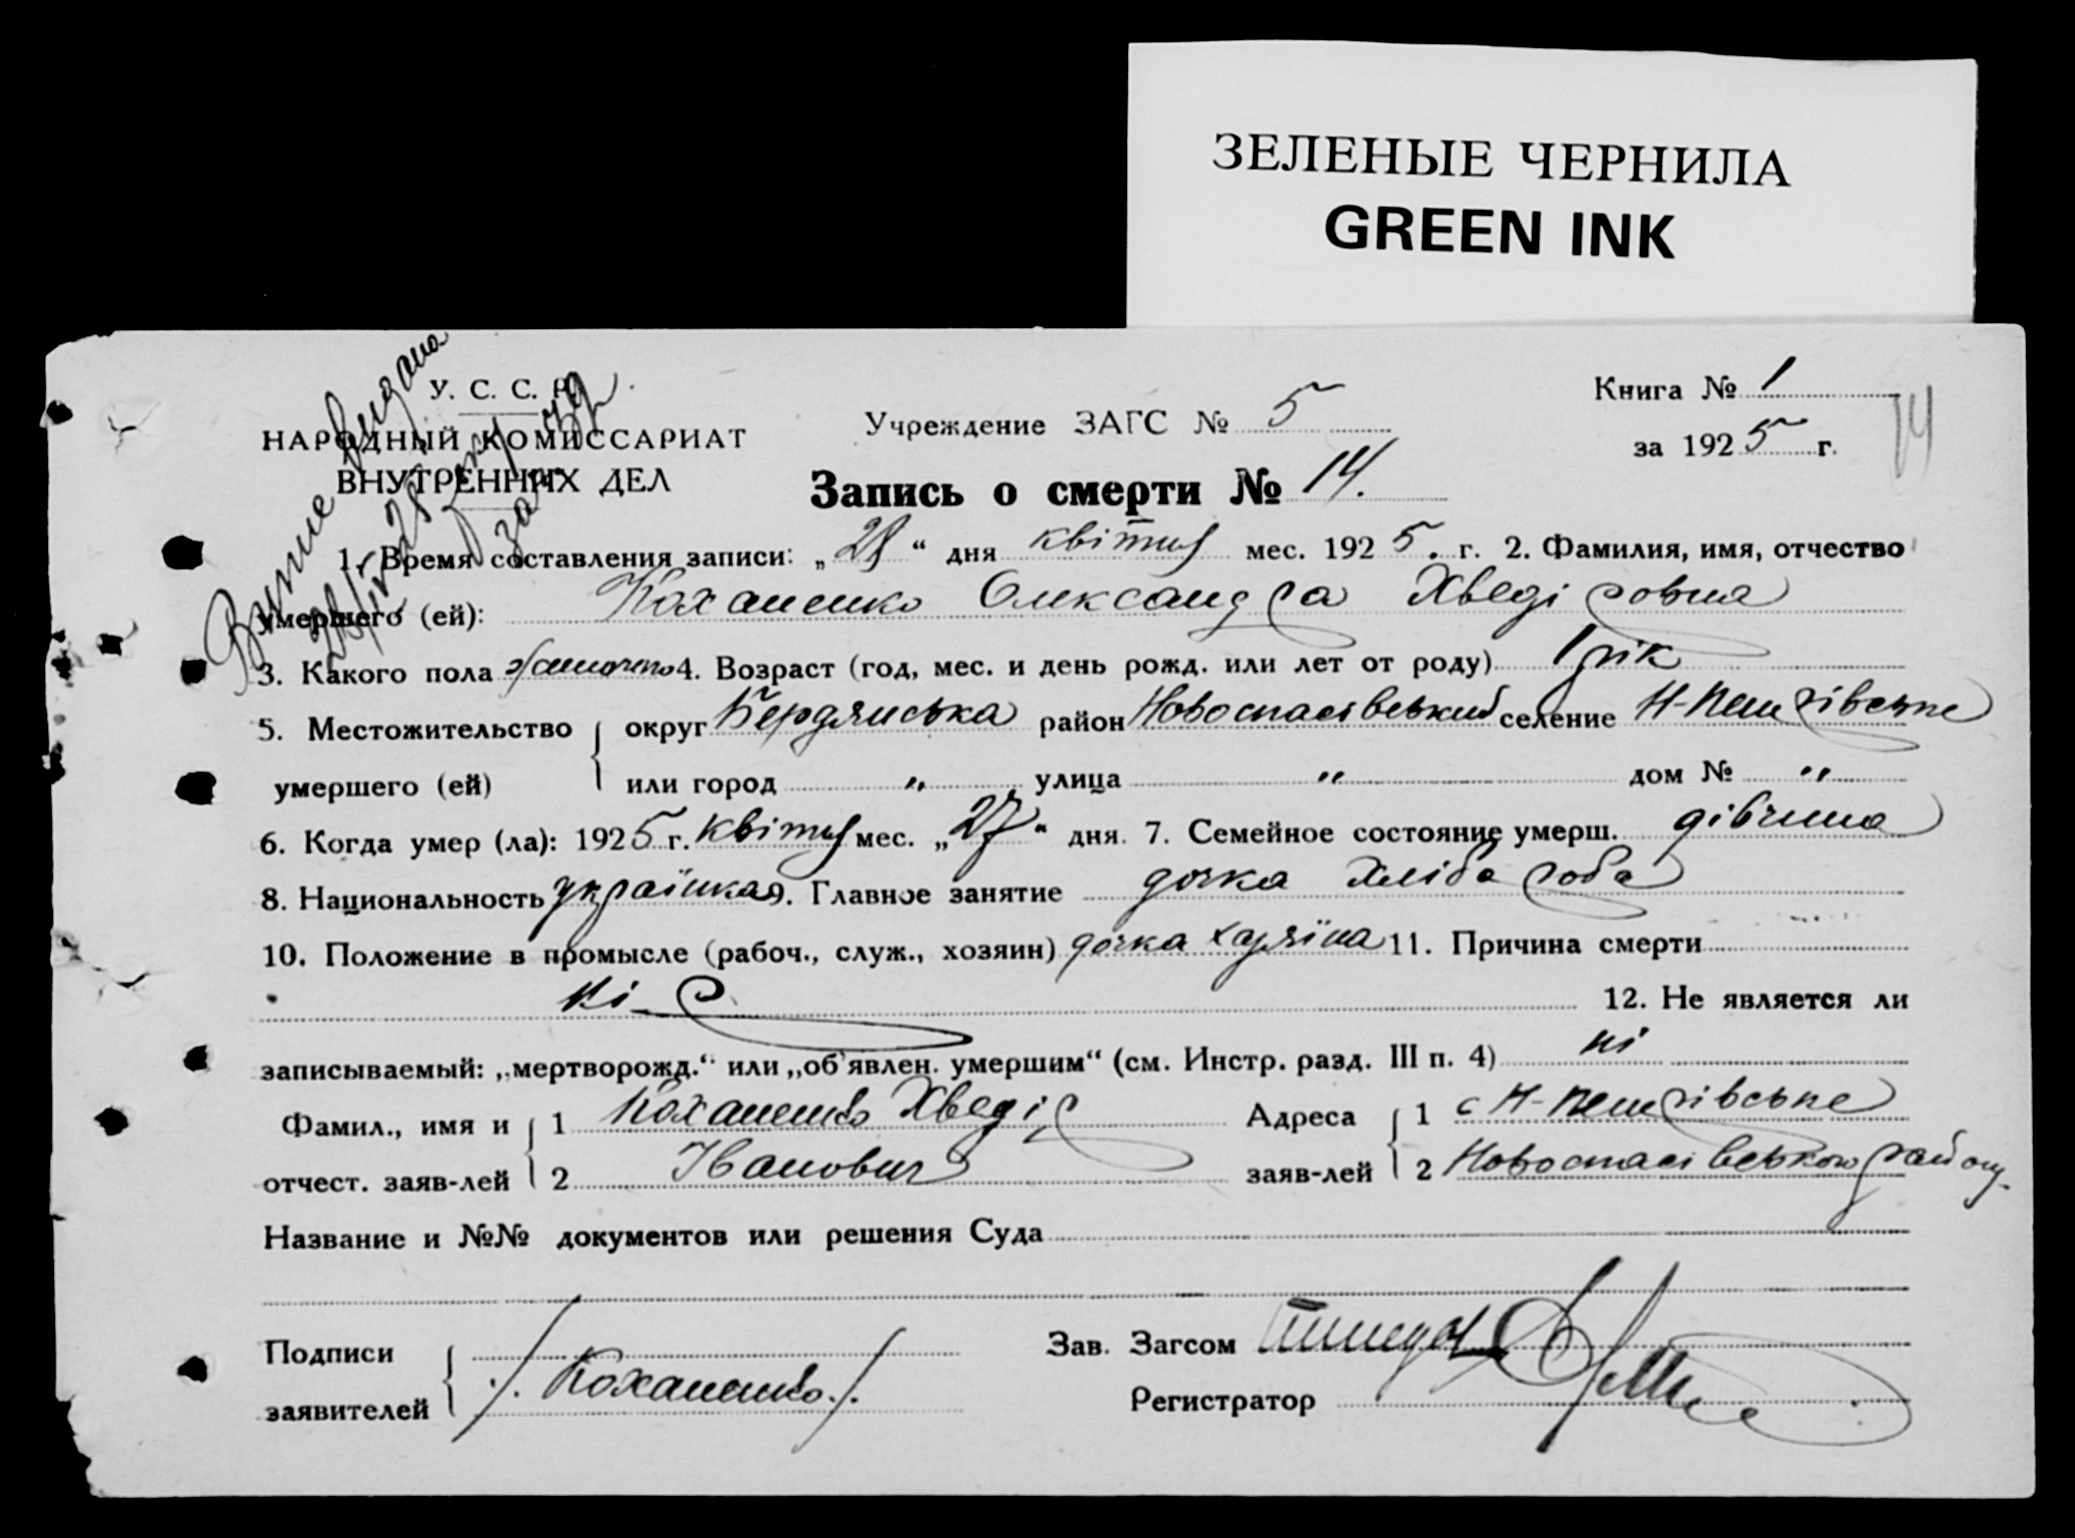 ЗЕЛЕНЫЕ ЧЕРНИЛА
GREEN INK
У. С. С. Р.
НАРОДНЫЙ КОМИССАРИАТ
ВНУТРЕННИХ ДЕЛ
видана
Учреждение ЗАГС № 5
Книга № 1
за 1925 г.
14
Запись о смерти № 14.
1. Время составления записи: „28“ дня квітня мес. 1925. г. 2. Фамилия, имя, отчество
умершего (ей): Коханенко Олександра Хведіровна
3. Какого пола жаночого 4. Возраст (год, мес. и день рожд. или лет от роду) 1 рік
5. Местожительство округ Бердянська район Новоспасівський селение Н-Петрівське
умершего (ей) или город " улица " дом № "
6. Когда умер (ла): 1925 г. квітня мес. „27“ дня. 7. Семейное состояние умерш. дівчина
8. Национальность українка 9. Главное занятие дочка хлібороба
10. Положение в промысле (рабоч., служ., хозяин) дочка хазяїна 11. Причина смерти
ні 12. Не является ли
записываемый: „мертворожд.“ или „об'явлен. умершим“ (см. Инстр. разд. III п. 4) ні
Фамил., имя и 1 Коханенко Хведір Адреса 1 с Н-Петрівське
отчест. заяв-лей 2 Іванович заяв-лей 2 Новоспасівського району
Название и №№ документов или решения Суда
Подписи
заявителей /. Коханенко. /.
Зав. Загсом
Регистратор